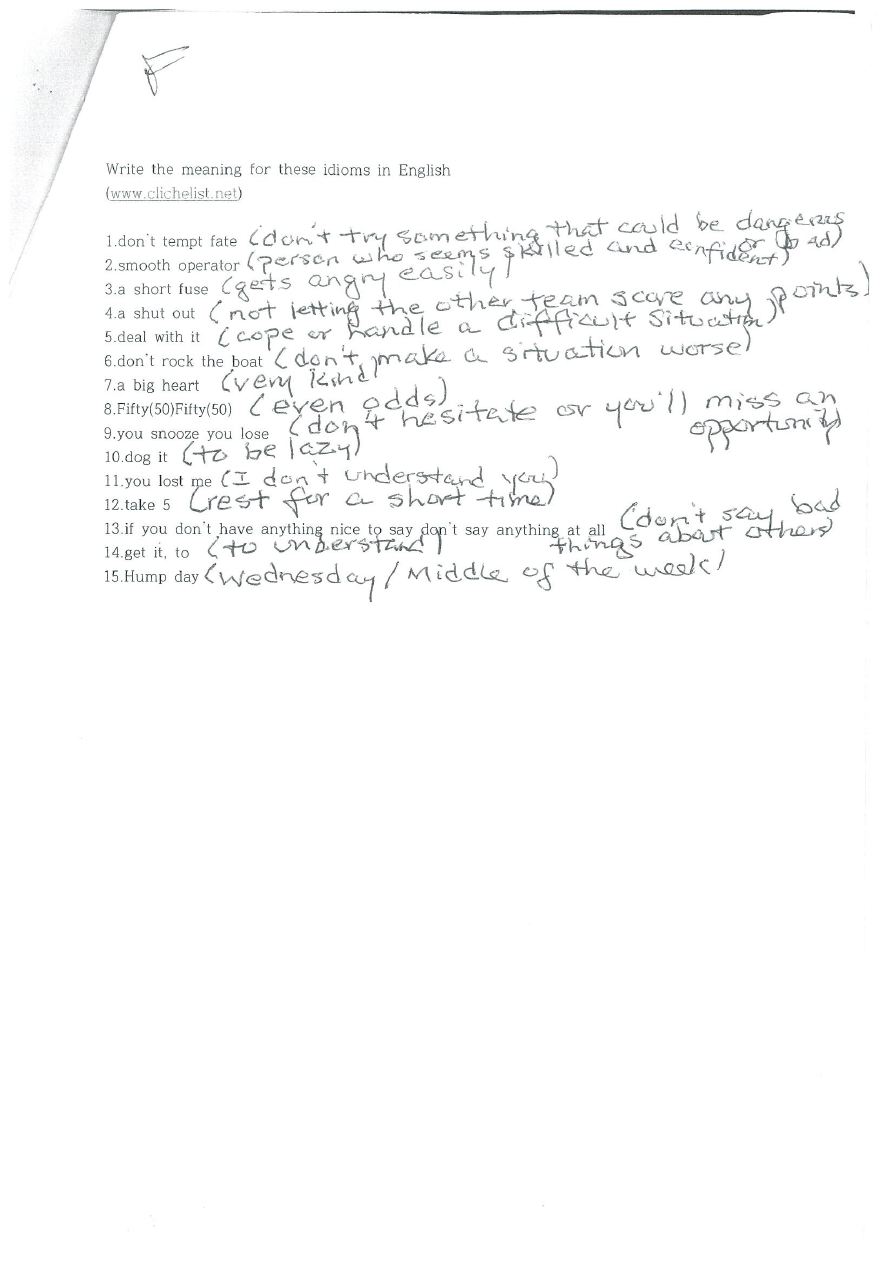 F
Write the meaning for these idioms in English
(www.clichelist.net)
1.don't tempt fate (don't try something that could be dangerous or bad)
2.smooth operator (person who seems skilled and confident)
3.a short fuse (gets angry easily)
4.a shut out (not letting the other team score any points)
5.deal with it (cope or handle a difficult situation)
6.don't rock the boat (don't make a situation worse)
7.a big heart (very kind)
8.Fifty(50)Fifty(50) (even odds)
9.you snooze you lose (don't hesitate or you'll miss an opportunity)
10.dog it (to be lazy)
11.you lost me (I don't understand you)
12.take 5 (rest for a short time)
13.if you don't have anything nice to say don't say anything at all (don't say bad things about others)
14.get it, to (to understand)
15.Hump day (Wednesday/Middle of the week)